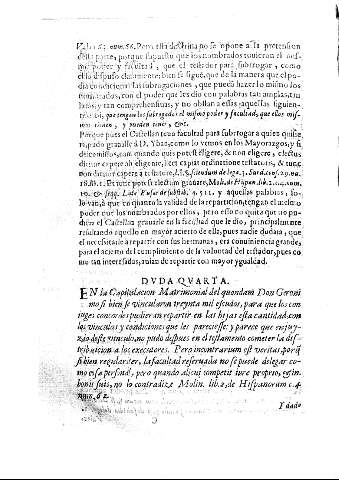 num. 56. Pero esta doctrina no se opone a la pretension
de esta parte, porque supuesto que los nombrados tuvieron el mes-
mo poder y facultad, que el testador para subrogar, como
ello dispuso claramente; bien se sigue, que de la manera que el po-
dia condicionar las subrogaciones, que pueda hazer lo mismo los
nombrados, con el poder que les dio con palabras tan amplas, tan
latas, y tan comprehensiuas, y no obstan a ellas aquellas siguien-
tes, que tengan los subrogados el mismo poder y facultad, que ellos mis-
mos tienen, y pueden tener, &c.
Porque pues el Castellan tuuo facultad para subrogar a quien quisie-
ra, pudo grauasle a D. Ybañ, como lo vemos en los Mayorazgos, y si
dezimos, tam quando quis potest eligere, & non eligere, electus
dicitur capere ab eligente, licet capiat ordinatione testatoris, & tunc
non dicitur capere a testatore,
18. lib. 1. Et tunc potest electum grauare, Mol. de Hispan. lib. 2. cap.
10. & seqq. Late Fusar de substit. q. 511. y aquellas palabras, so-
lo van, a que en quanto la validad de la reparticion, tengan el mesmo
poder que los nombrados por ellos, pero esso no quita que no pu-
diera el Castellan grauarle en la facultad que le dio, principalmente
resultando aquello en mayor acierto de ella, pues nadie dudara, que
el necessitarle a repartir con sus hermanas, era conueniencia grande,
para el acierto del cumplimiento de la voluntad del testador, pues co-
mo tan interessadas, auian de repartir con mayor ygualdad.
DVDA QVARTA.
EN la Capitulacion Matrimonial del quondam Don Geroni
mo si bien se vincularon treynta mil escudos, para que los con-
iuges concordes pudieran repartir en las hijas esta cantidad, con
los vinculos y condiciones que les pareciesse; y parece que en juy-
zio deste vinculo, no pudo despues en el testamento cometer la dis-
tribucion a los executores. Pero incontrarium est veritas, porq̃
si bien regulariter, la facultad reseruada no se puede delegar co-
mo otra persona, pero quando alicui competit iure proprio, & in
bonis suis, no lo contradize Molin. lib. 2. de Hispanorum c. 4.
num. 62.
Y dado